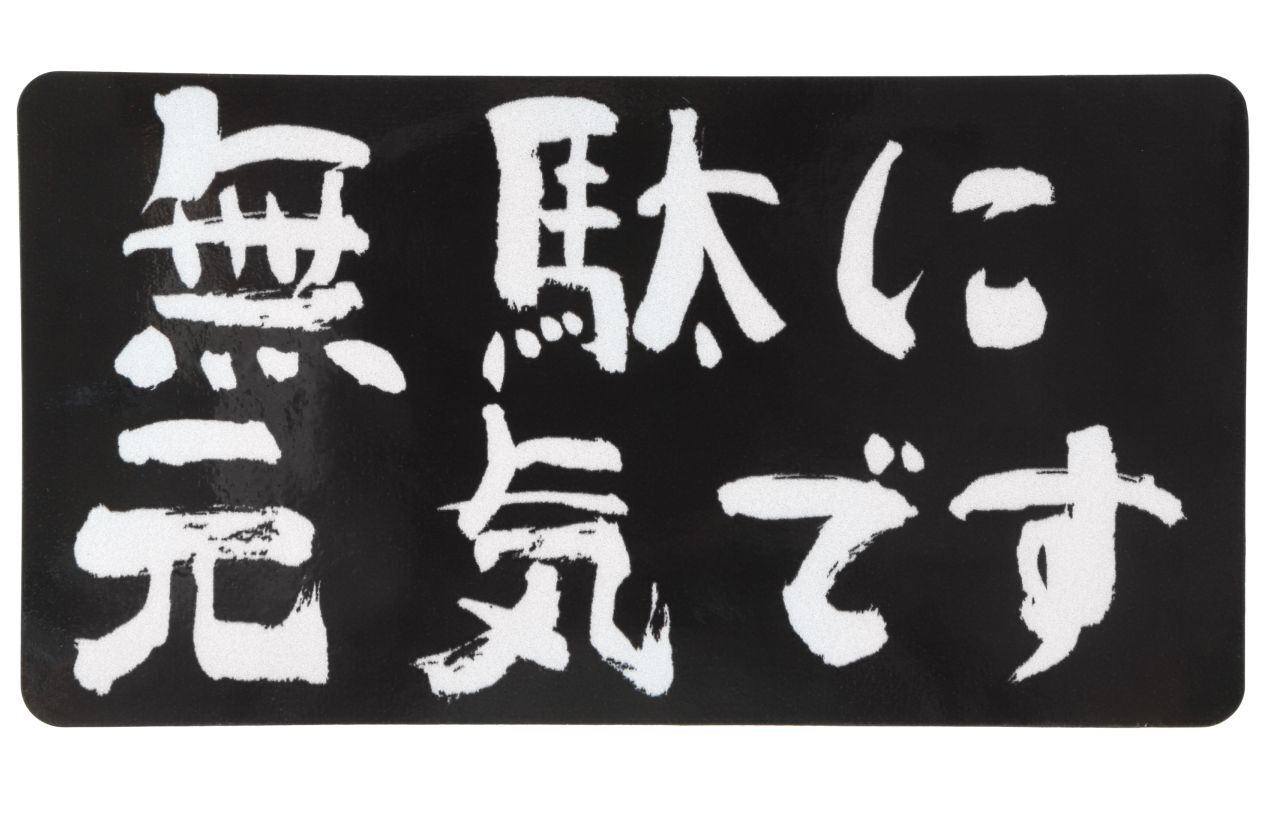 無駄に
元気です